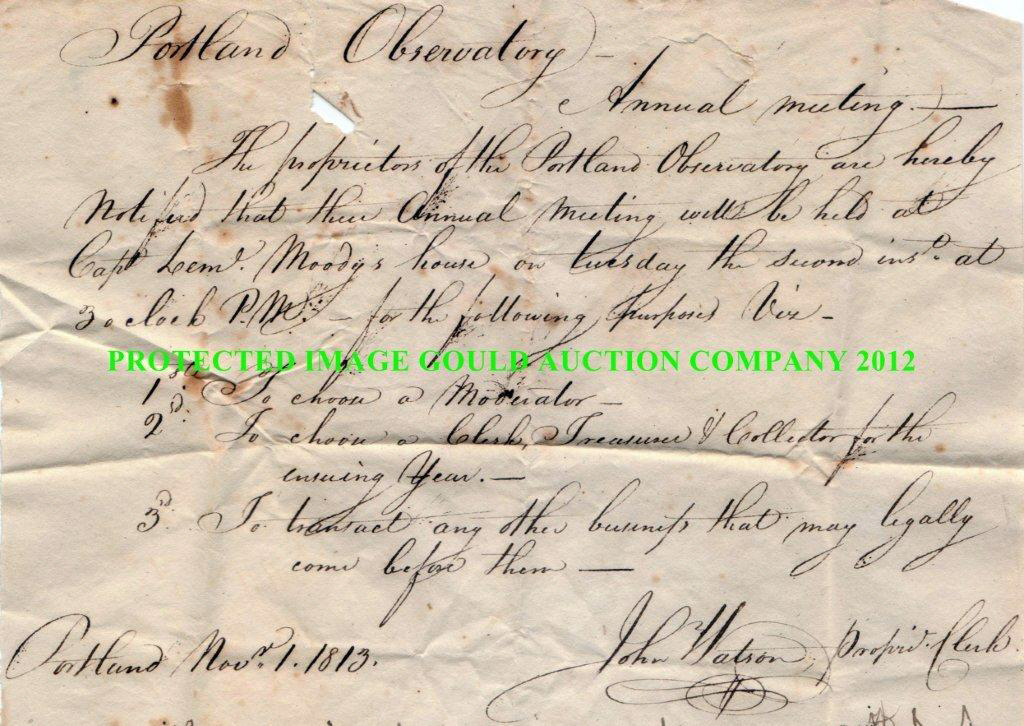 Portland Observatory –
Annual meeting. —
The proprietors of the Portland Observatory are hereby
Notified that their Annual Meeting will be held at
Capt Lemˡ. Moody's house on tuesday the second insᵗ. at
3 o clock P.M. – for the following purposes Viz –
PROTECTED IMAGE GOULD AUCTION COMPANY 2012
1ˢᵗ. To choose a Moderator –
2ᵈ. To choose a Clerk, Treasurer & Collector for the
ensuing Year. –
3ᵈ. To transact any other business that may legally
come before them —
Portland Novʳ. 1. 1813.
John Watson, Proprᵗ. Clerk.